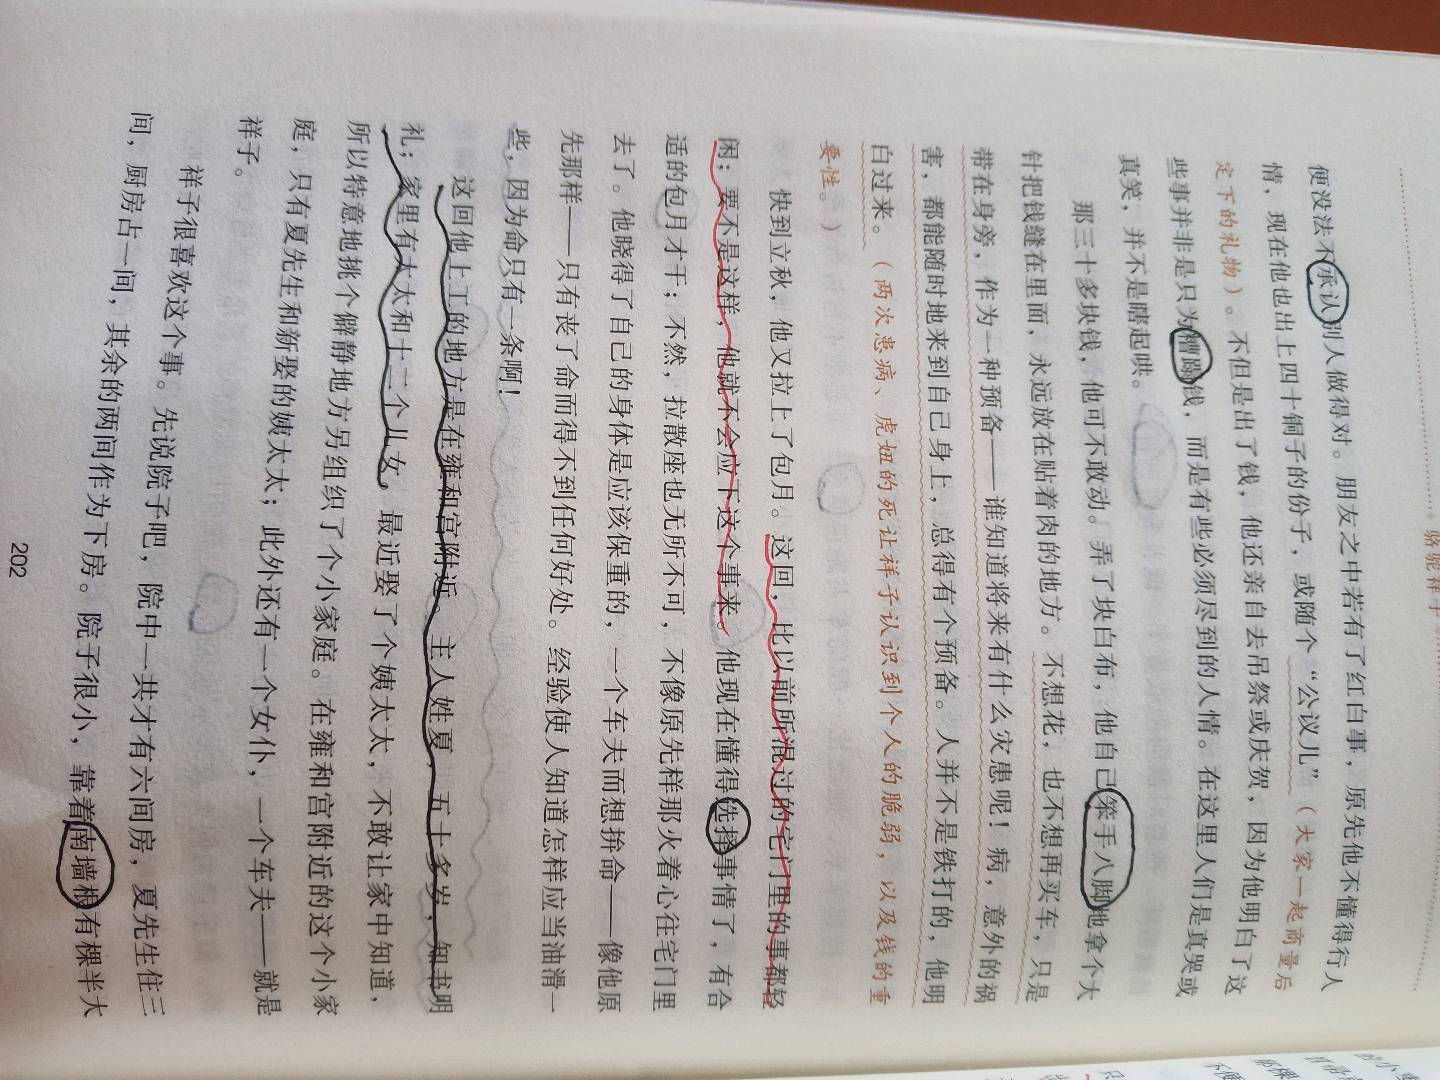 骆驼祥子
便没法不承认别人做得对。朋友之中若有了红白事，原先他不懂得行人
情，现在他也出上四十铜子的份子，或随个“公议儿”（大家一起商量后
定下的礼物）。不但是出了钱，他还亲自去吊祭或庆贺，因为他明白了这
些事并非是只为糟蹋钱，而是有些必须尽到的人情。在这里人们是真哭或
真笑，并不是瞎起哄。
那三十多块钱，他可不敢动。弄了块白布，他自己笨手八脚地拿个大
针把钱缝在里面，永远放在贴着肉的地方。不想花，也不想再买车，只是
带在身旁，作为一种预备——谁知道将来有什么灾患呢！病，意外的祸
害，都能随时地来到自己身上，总得有个预备。人并不是铁打的，他明
白过来。（两次患病、虎妞的死让祥子认识到个人的脆弱，以及钱的重
要性。）
快到立秋，他又拉上了包月。这回，比以前所混过的宅门里的事都轻
闲；要不是这样，他就不会应下这个事来。他现在懂得选择事情了，有合
适的包月才干；不然，拉散座也无所不可，不像原先那样火着心往宅门里
去了。他晓得了自己的身体是应该保重的，一个车夫而想拼命——像他原
先那样——只有丧了命而得不到任何好处。经验使人知道怎样应当油滑一
些，因为命只有一条啊！
这回他上工的地方是在雍和宫附近。主人姓夏，五十多岁，知书明
礼；家里有太太和十二个儿女。最近娶了个姨太太，不敢让家中知道，
所以特意地挑个僻静地方另组织了个小家庭。在雍和宫附近的这个小家
庭，只有夏先生和新娶的姨太太；此外还有一个女仆，一个车夫——就是
祥子。
祥子很喜欢这个事。先说院子吧，院中一共才有六间房，夏先生住三
间，厨房占一间，其余的两间作为下房。院子很小，靠着南墙根有棵半大
202